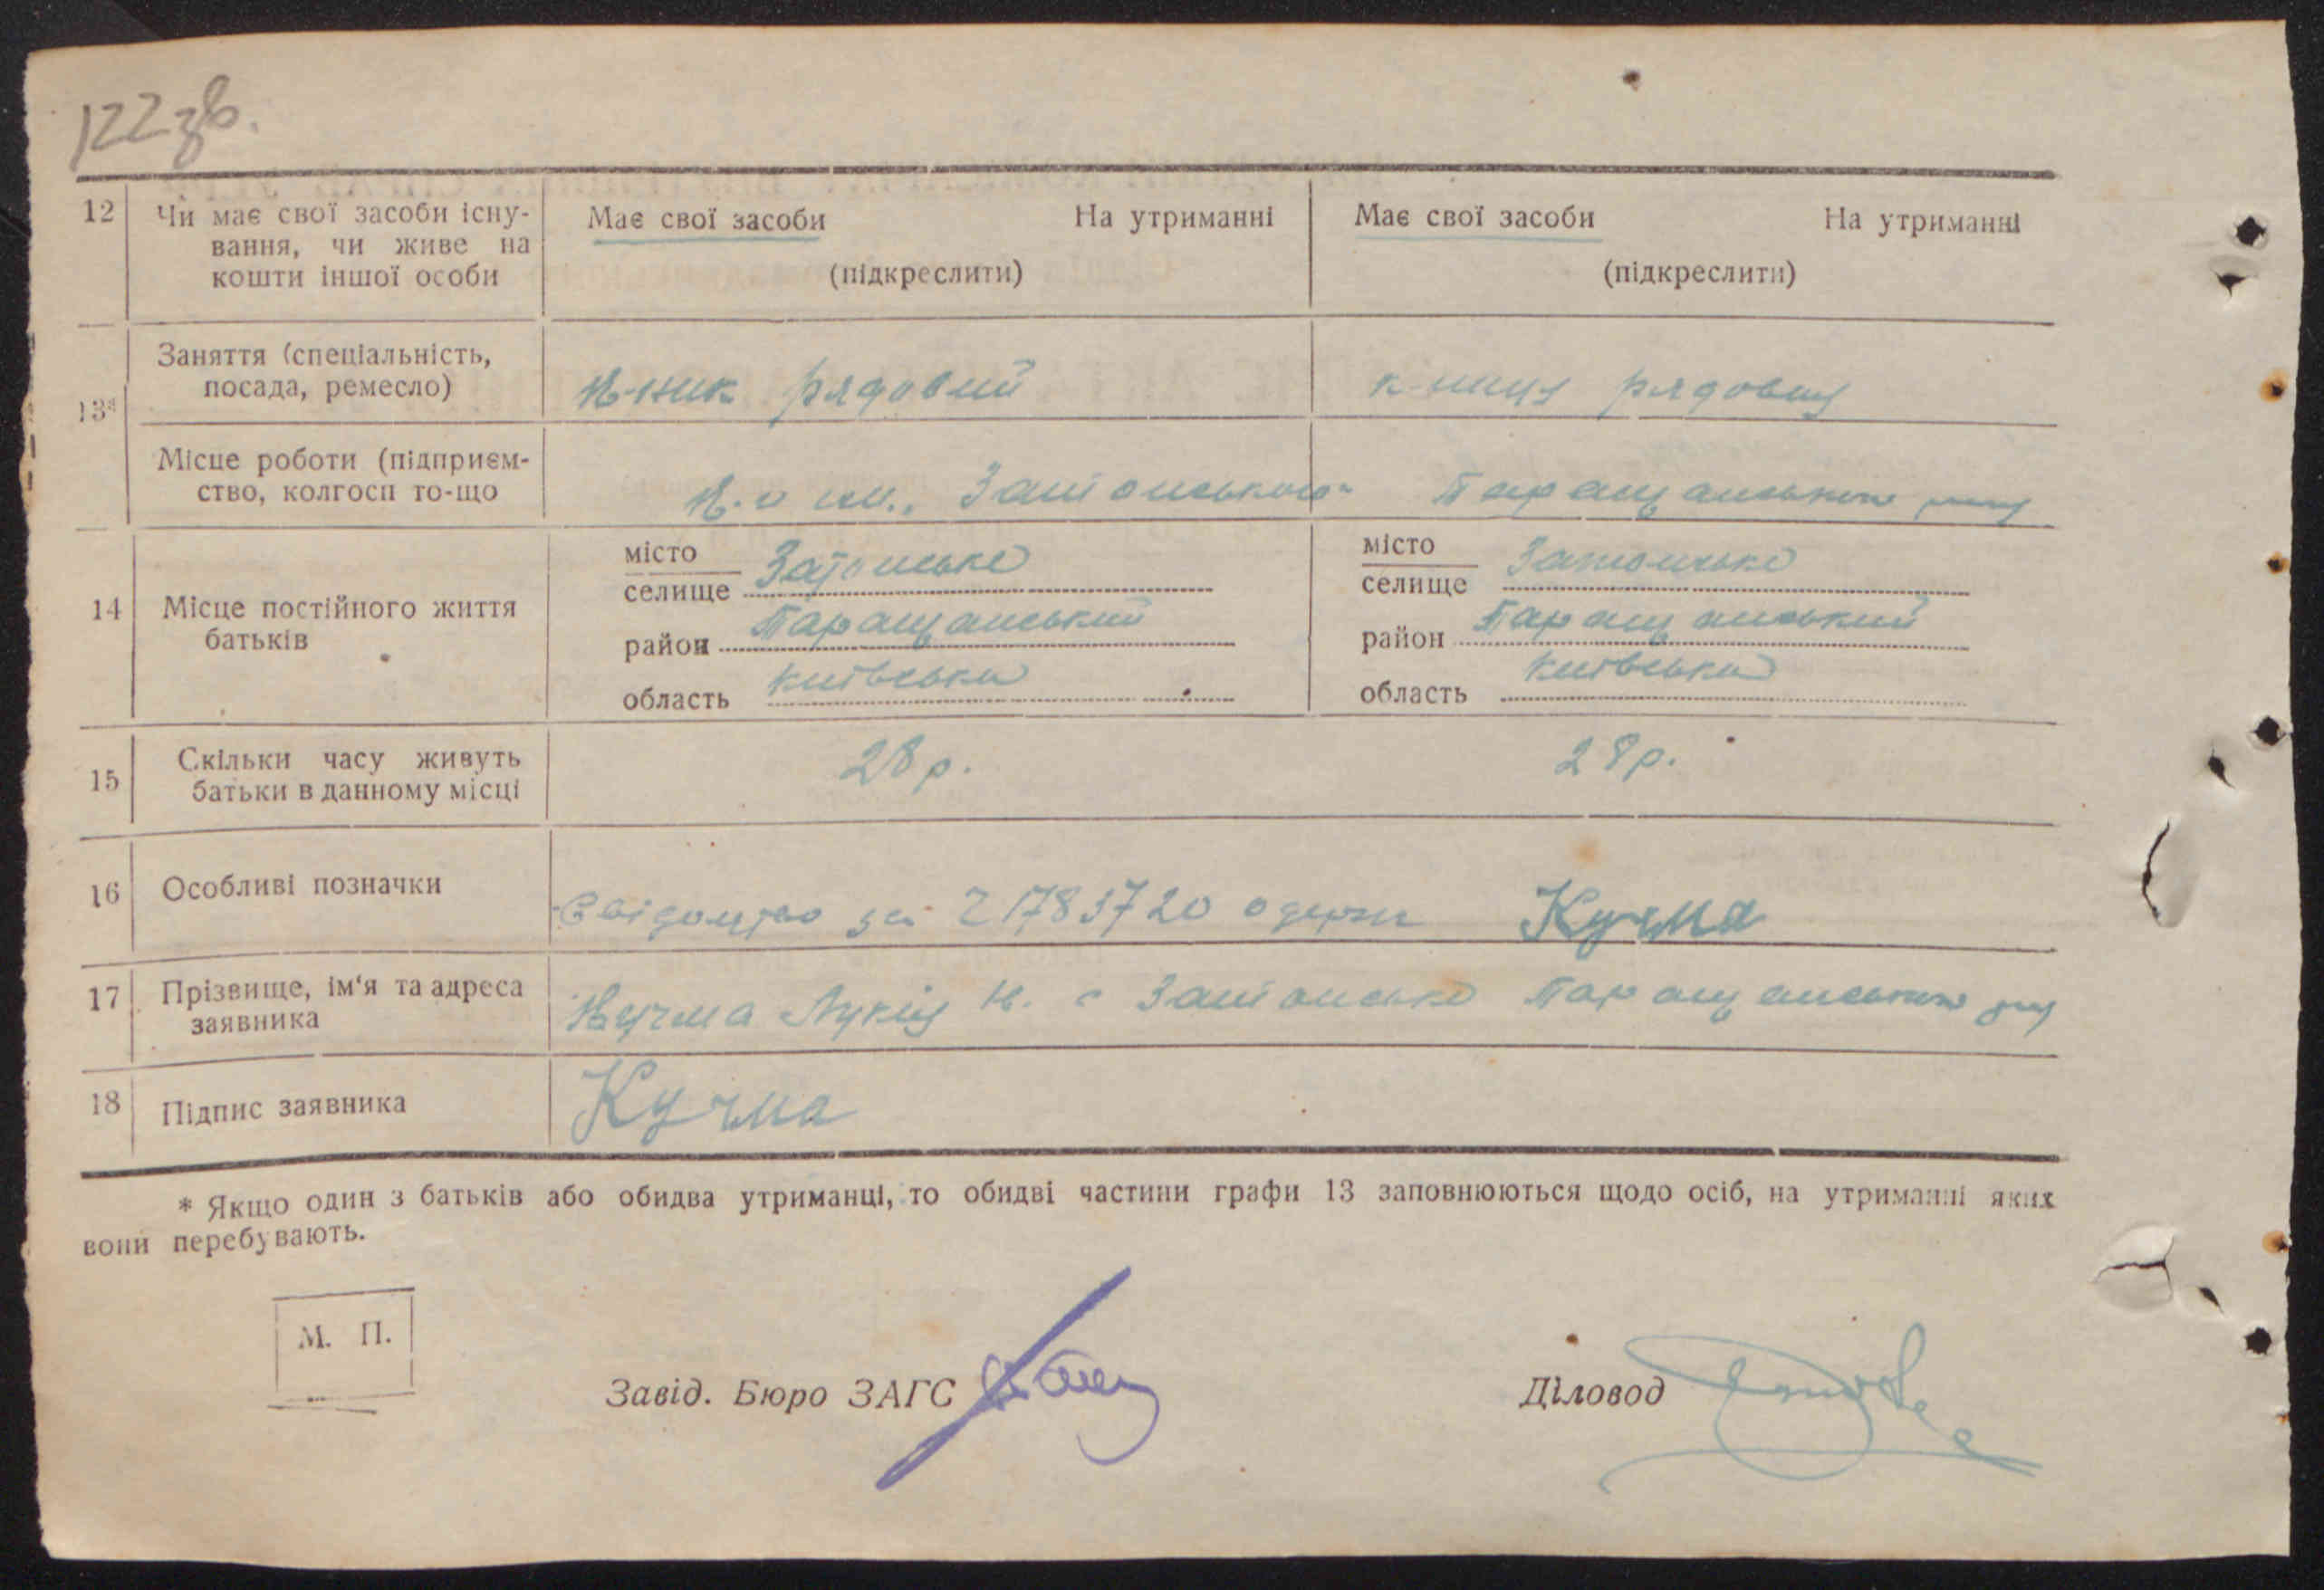 122зв.
12 Чи має свої засоби існу- Має свої засоби На утриманні Має свої засоби На утриманні
вання, чи живе на
кошти іншої особи (підкреслити) (підкреслити)
Заняття (спеціальність,
посада, ремесло) к-ник рядовий к-ниця рядовия
13*
Місце роботи (підприєм- к-п ім. Затонського Таращанського
ство, колгосп то-що
місто Затонське місто Затонське
селище селище
14 Місце постійного життя район Таращанський район Таращанський
батьків
область київська область київська
15 Скільки часу живуть 28 р. 28 р.
батьки в данному місці
16 Особливі позначки Свідоцтво за 2178 5720 одерж Кучма
17 Прізвище, ім'я та адреса Кучма Лукія К. с Затонське Таращанського р-ну
заявника
18 Підпис заявника Кучма
* Якщо один з батьків або обидва утриманці, то обидві частини графи 13 заповнюються щодо осіб, на утриманні яких
вони перебувають.
М. П.
Завід. Бюро ЗАГС Діловод